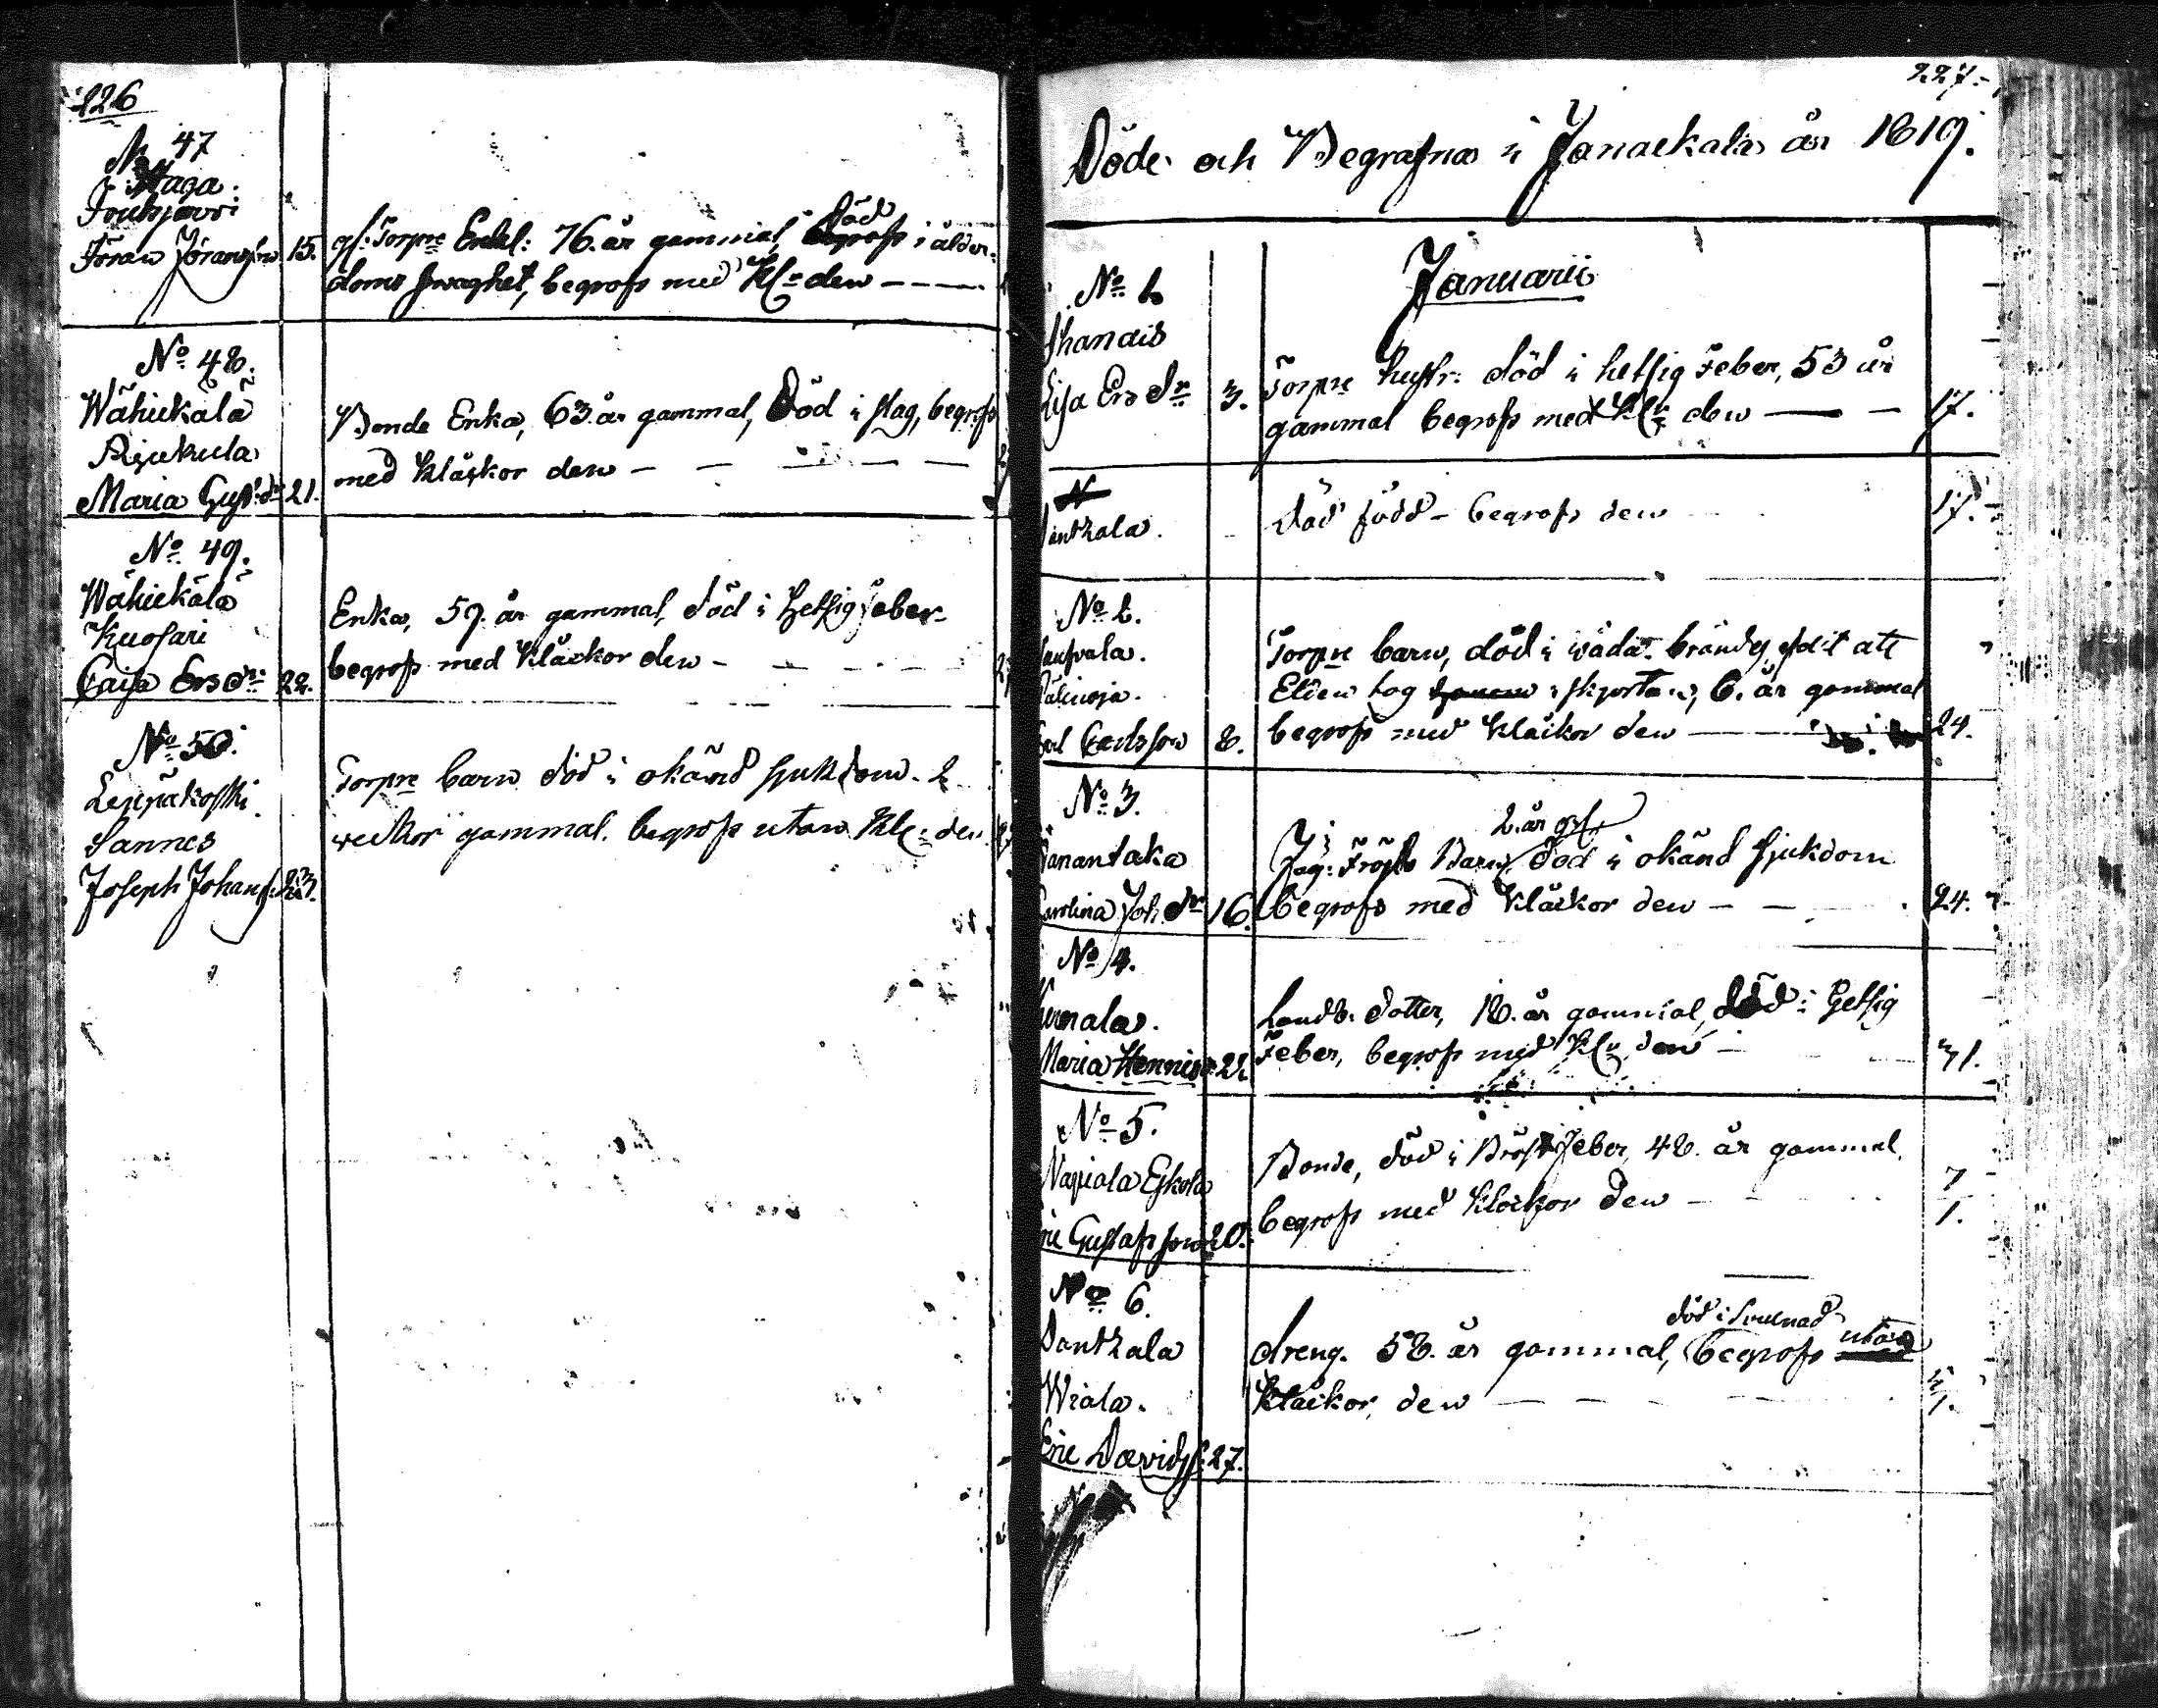 226
No 47
Haga.
Joutsjärvi
Jöran Jöransson 15.
gl: Torpre Enkl: 76. år gammal, död i ålder-
doms swaghet, begrofs med Kl: den
No 48.
Wähickälä
Rijukula
Maria Gust: dr 21.
Bonde Enka, 63. år gammal, Död i slag, begrofs
med Kläckor den
No 49.
Wähickälä
Kuosari
Caisa Ers dr: 22.
Enka, 59. år gammal, död i hetsig feber
begrofs med Kläckor den
No 50.
Leppäkoski
Sannes
Joseph Johans: 23.
Torpre barn död i okänd sjukdom. 2
weckor gammal. begrofs utan Kl: den
227.
Döde och Begrafna i Janackala år 1819.
Januarii
No 1.
Lisa Ers dr 3.
Torpre hustr: död i hetsig Feber, 53 år
gammal begrofs med Kl: den 17.
Död född - begrofs den 17.
No 2.
Carlsson 8.
Torpre barn, död i wåda. brändes ihjel att
Elden tog i skjortan, 6. år gammal
begrofs med Kläckor den 24.
No 3.
Tanantaka
Carolina Joh. dr 16.
2. år gl:
Jäg: Barn, död i okänd sjukdom
begrofs med Kläckor den 24.
No 4.
Maria 22.
Landb. dotter, 18. år gammal, död i hetsig
Feber, begrofs med Kl: den 31.
No 5.
Napiala Eskola
Eric Gustafsson 20.
Bonde, död i Bröst Feber, 48. år gammal,
begrofs med Kläckor den 7
No 6.
Dantkala
Wiala.
Eric Davids: 27.
dreng. 58. år gammal, död i Swulnad begrofs utan
Kläckor den